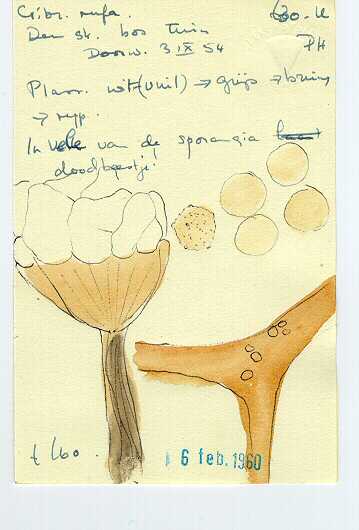 Cribr. rufa.
Den sk. bos tuin
Doorw. 3 IX 54
PH
Plasm. wit (vuil) → grijs → bruin
→ rijp.
In vele van de sporangia
doodbeestje!
6 feb. 1960